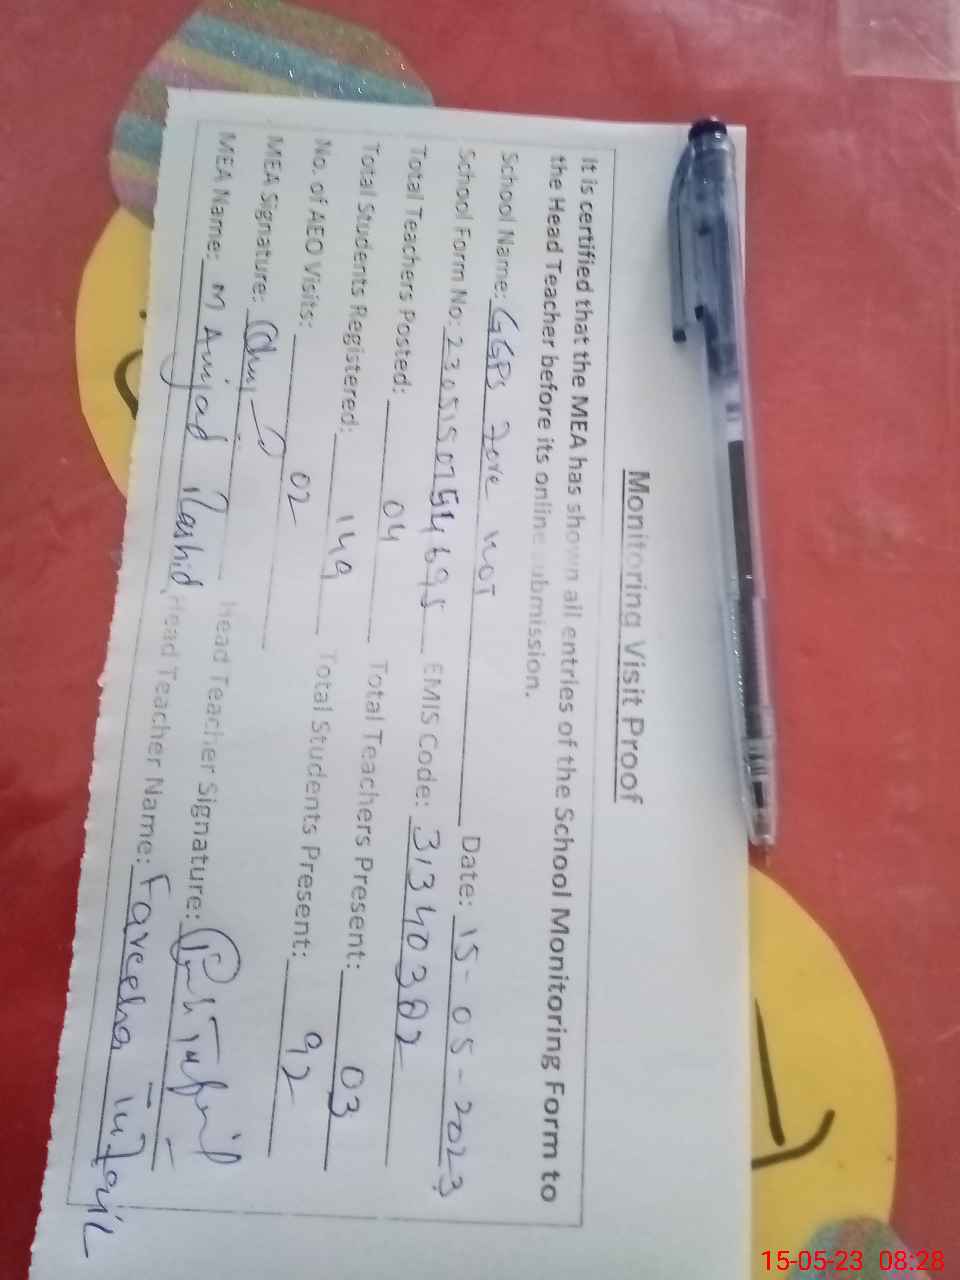 Monitoring Visit Proof
It is certified that the MEA has shown all entries of the School Monitoring Form to
the Head Teacher before its online submission.
School Name: GGPS Zore WOT Date: 15-05-2023
School Form No: EMIS Code: 31340302
Total Teachers Posted: 04 Total Teachers Present: 03
Total Students Registered: 149 Total Students Present: 92
No. of AEO Visits: 02
MEA Signature: Head Teacher Signature:
MEA Name: M Amjad Rashid Head Teacher Name: Fareeha
15-05-23 08:28